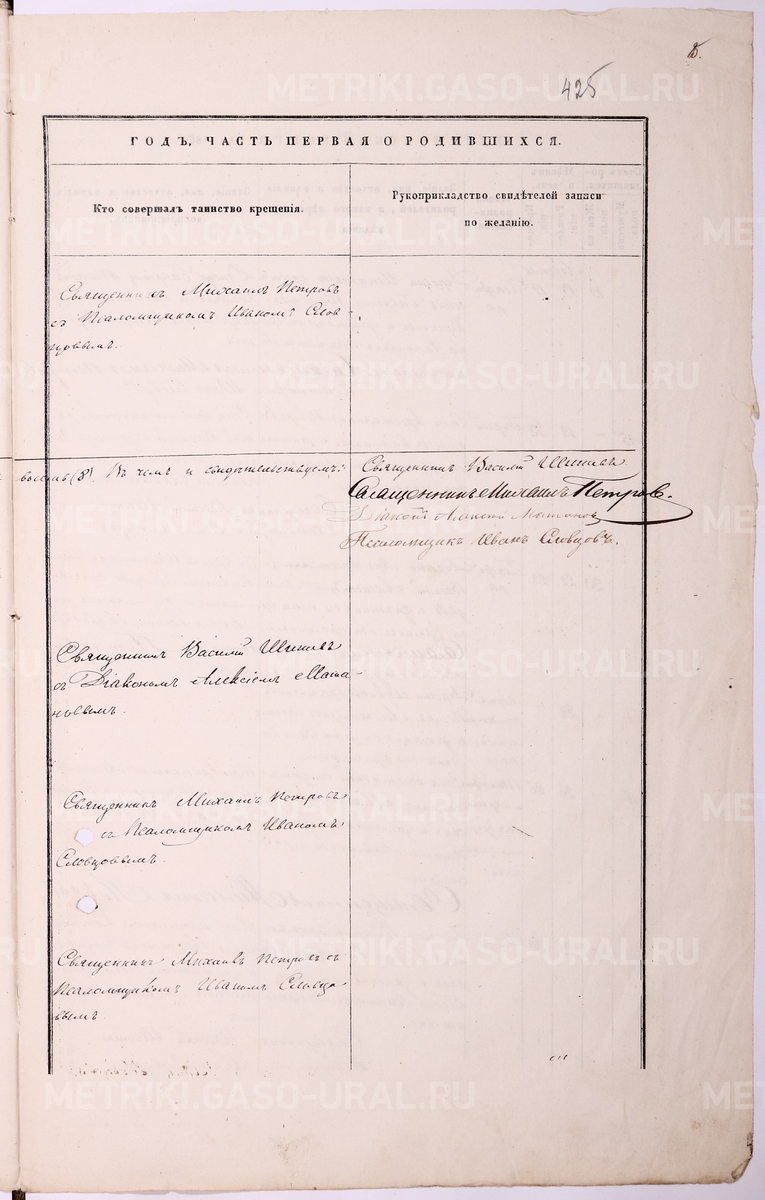 425
ГОДЪ, ЧАСТЬ ПЕРВАЯ О РОДИВШИХСЯ.
Кто совершалъ таинство крещенія.
Рукоприкладство свидѣтелей записи
по желанію.
Священникъ Михаилъ Петровъ
съ Псаломщикомъ Иваномъ Слов-
цовымъ.
восемь (8). Въ чемъ и свидѣтельствуемъ:
Священникъ Василій
Священникъ Михаилъ Петровъ.
Діаконъ Алексій
Псаломщикъ Иванъ Словцовъ.
Священникъ Василій
съ Діакономъ Алексіемъ Мата-
новымъ.
Священникъ Михаилъ Петровъ
съ Псаломщикомъ Иваномъ
Словцовымъ.
Священникъ Михаилъ Петровъ съ
Псаломщикомъ Иваномъ Словцо-
вымъ
METRIKI.GASO-URAL.RU